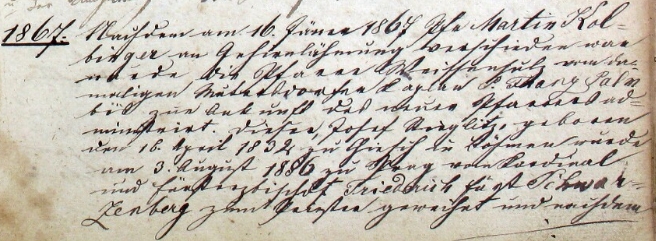 1867. Nachdem am 16. Jänner 1867 Pfr Martin Kol-
binger an Gehirnlähmung verschieden war
wurde die Pfarre Weissensulz vom da-
maligen Kaplan P. Franz
bis zur Ankunft des neuen Pfarrers ad-
ministrirt. Dieser, Josef geboren
den 16. April 1832 zu in Böhmen wurde
am 3. August 1886 zu Prag von Kardinal
und Fürsterzbischof Friedrich Fürst Schwar-
zenberg zum Priester geweihet und nachdem